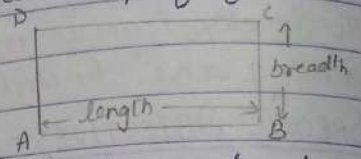 D C
breadth
length
A B